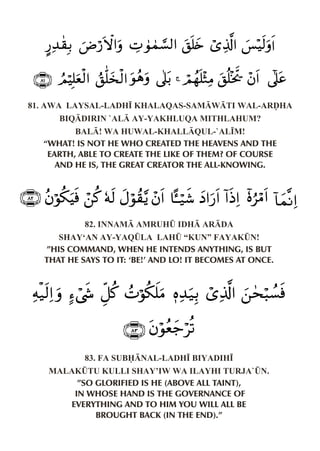 اَوَلَيْسَ الَّذِىْ خَلَقَ السَّمٰوٰتِ وَالْاَرْضَ بِقٰدِرٍ
عَلٰٓى اَنْ يَّخْلُقَ مِثْلَهُمْ ؕ بَلٰى وَهُوَ الْخَلّٰقُ الْعَلِيْمُ ﴿۸۱﴾
81. AWA LAYSAL-LADHĪ KHALAQAS-SAMĀWĀTI WAL-ARḌHA
BIQĀDIRIN `ALĀ AY-YAKHLUQA MITHLAHUM?
BALĀ! WA HUWAL-KHALLĀQUL-`ALĪM!
“WHAT! IS NOT HE WHO CREATED THE HEAVENS AND THE
EARTH, ABLE TO CREATE THE LIKE OF THEM? OF COURSE
AND HE IS, THE GREAT CREATOR THE ALL-KNOWING.
اِنَّمَاۤ اَمْرُهٗۤ اِذَاۤ اَرَادَ شَيْـًٔا اَنْ يَّقُوْلَ لَهٗ كُنْ فَيَكُوْنُ ﴿۸۲﴾
82. INNAMĀ AMRUHŪ IDHĀ ARĀDA
SHAY‘AN AY-YAQŪLA LAHŪ “KUN” FAYAKŪN!
”HIS COMMAND, WHEN HE INTENDS ANYTHING, IS BUT
THAT HE SAYS TO IT: ‘BE!’ AND LO! IT BECOMES AT ONCE.
فَسُبْحٰنَ الَّذِىْ بِيَدِهٖ مَلَكُوْتُ كُلِّ شَىْءٍ وَّاِلَيْهِ
تُرْجَعُوْنَ ﴿۸۳﴾
83. FA SUBḤĀNAL-LADHĪ BIYADIHĪ
MALAKŪTU KULLI SHAY’IW WA ILAYHI TURJA`ŪN.
”SO GLORIFIED IS HE (ABOVE ALL TAINT),
IN WHOSE HAND IS THE GOVERNANCE OF
EVERYTHING AND TO HIM YOU WILL ALL BE
BROUGHT BACK (IN THE END).”